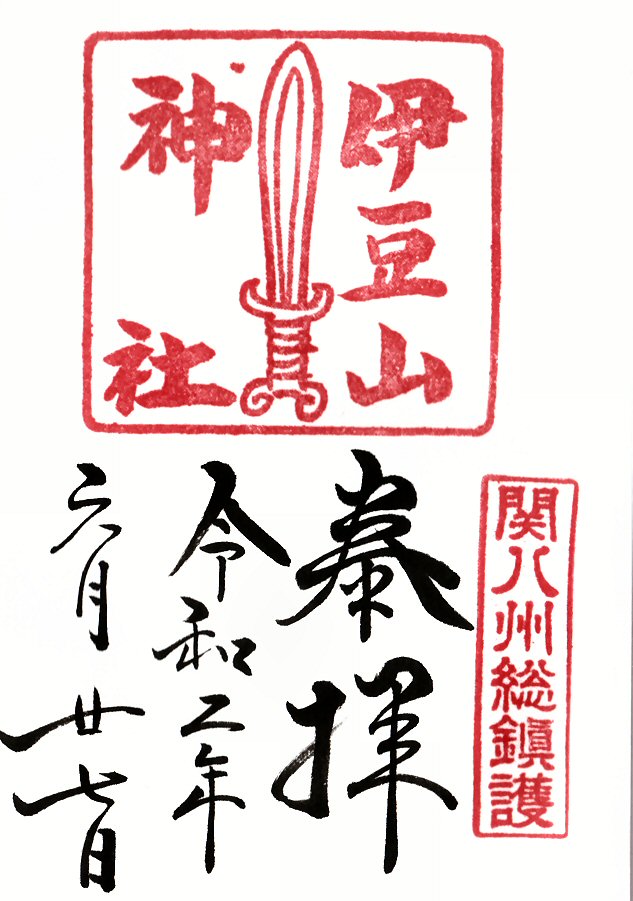 伊豆山
神社
関八州総鎮護
奉拝
令和二年
六月廿七日